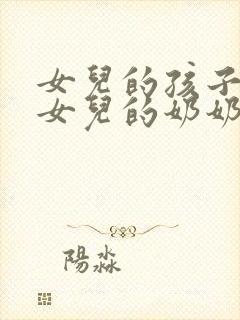 女兒的孩子
女兒的奶奶
陽淼